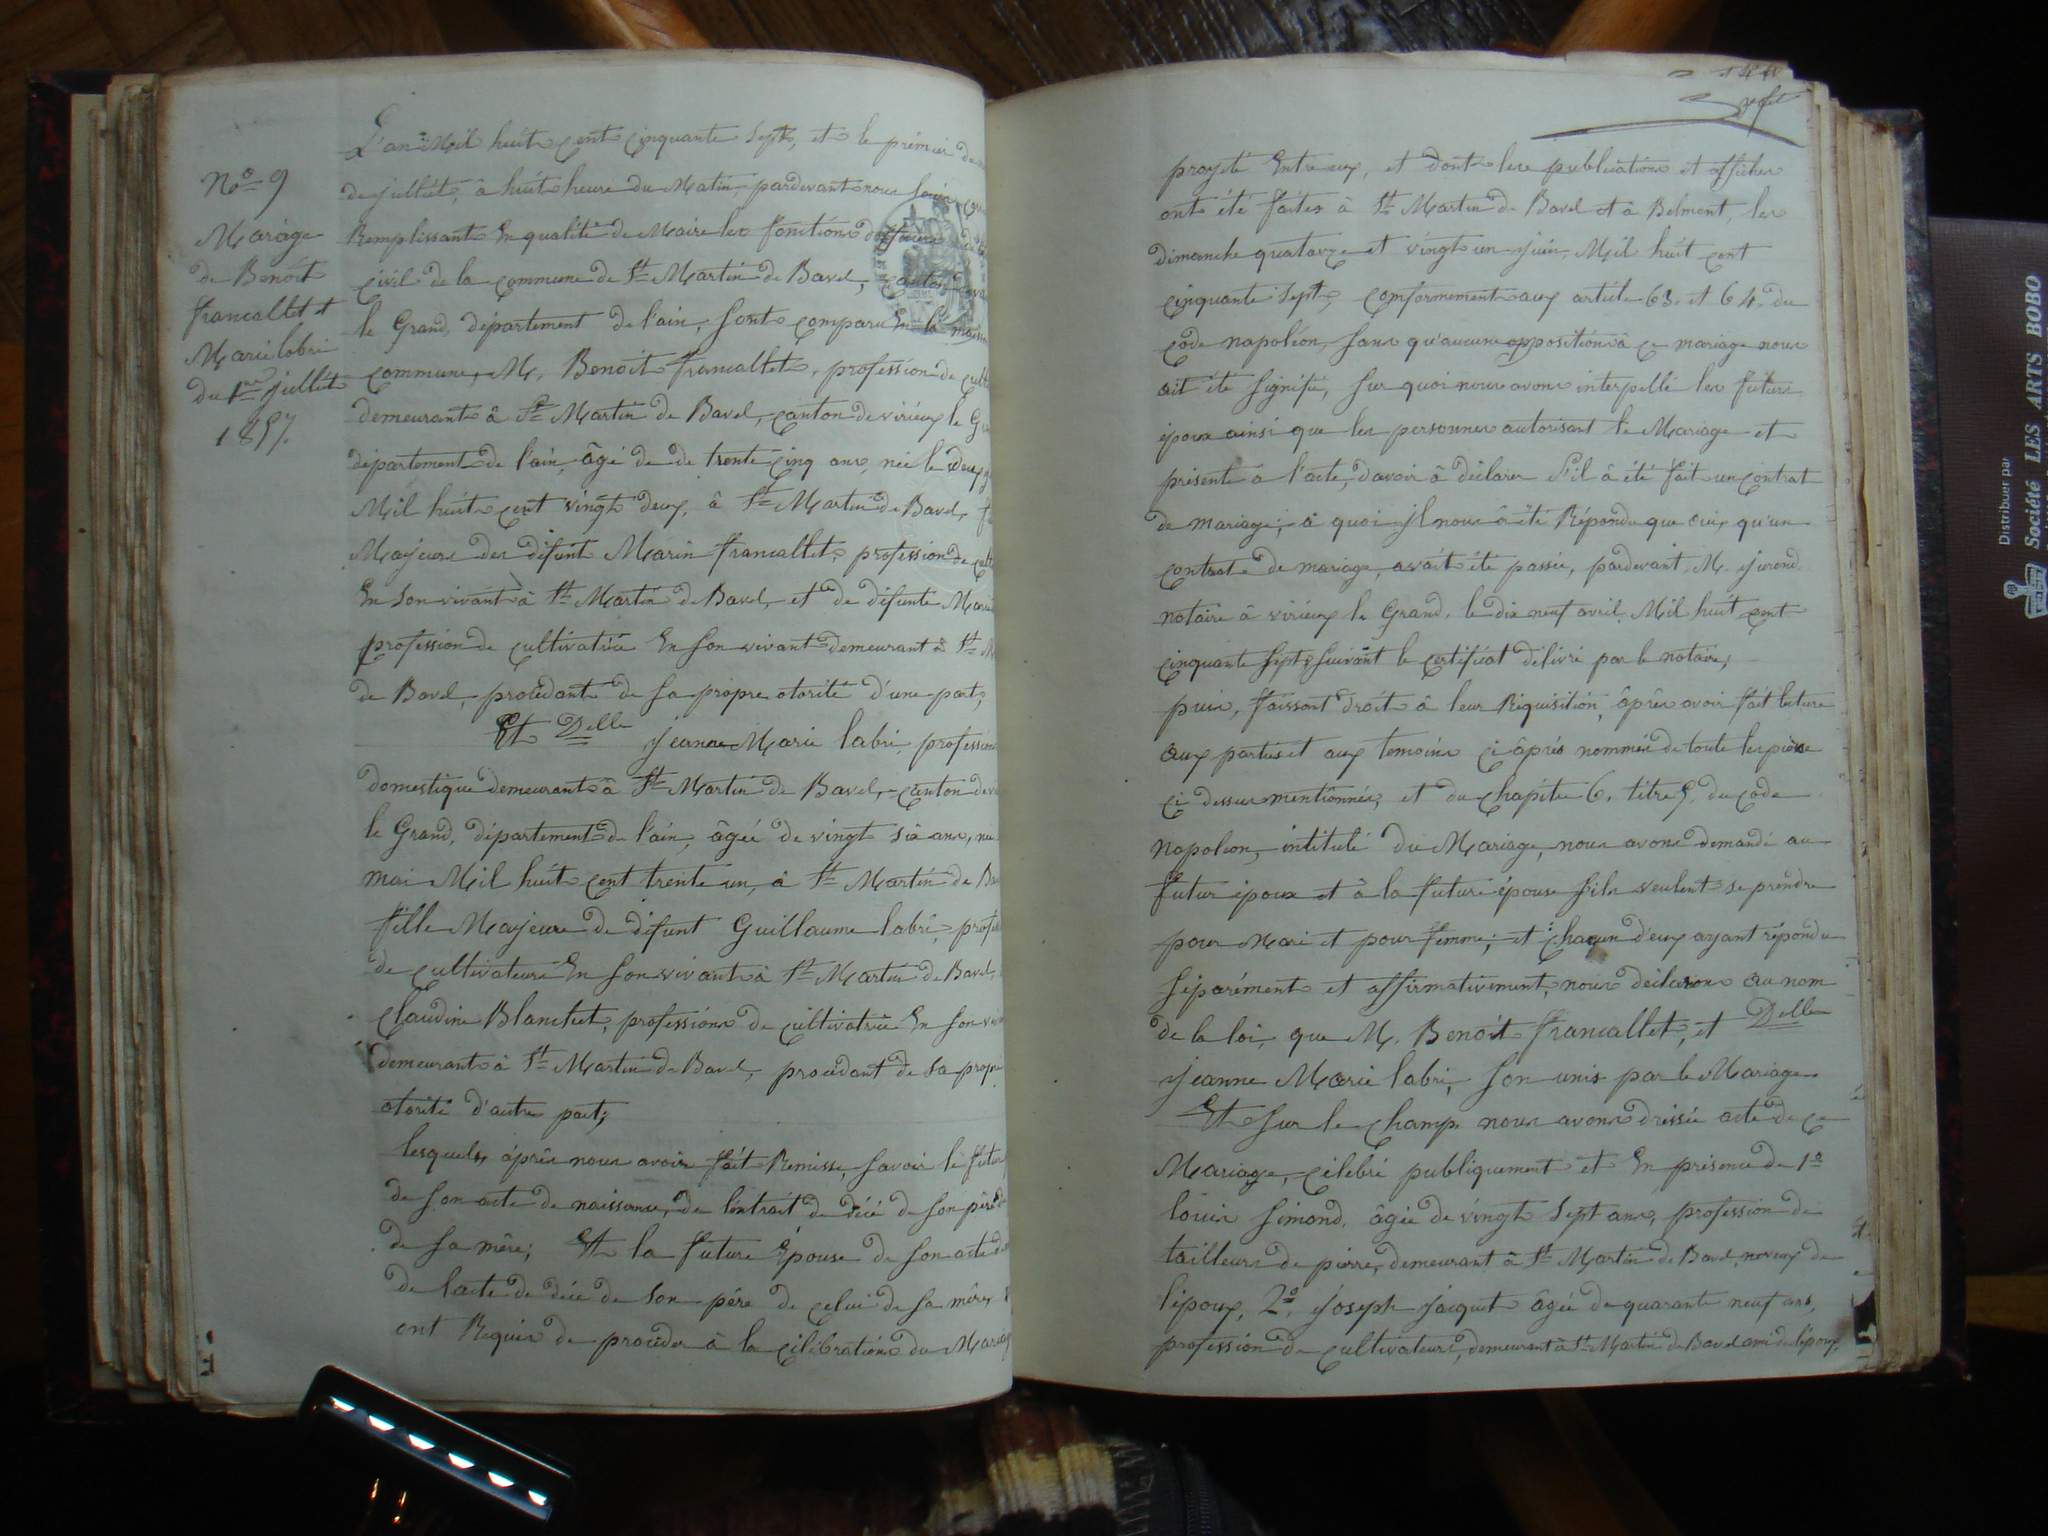 N.o 9
Mariage
de Benoit
francallet et
Marie labri
du 1er juillet
1857.
L'an Mil huit cent cinquante Sept, et le prémier du
de juillét, à huit heure du Matin, pardevant nous
Remplissant En qualité de Maire les fonctions
çivil de la commune de St Martin de Bavel, canton
le Grand, département de l'ain, sont comparu En la
commune, M. Benoit francallet, profession de
demeurant à St Martin de Bavel, canton de virieux le
département de l'ain, âgé de de trente çinq ans, née le deux
Mil huit cent vingt deux, à St Martin de Bavel,
Majeure des difunt Marin francallet, profession de
En son vivant à St Martin de Bavel, et de difunte Marie
profession de cultivatrice En son vivant demeurant à St
de Bavel, procédant de sa propre otorité d'une part,
Et Delle jeanne Marie labri, profession
domestique demeurant à St Martin de Bavel, canton de
le Grand, département de l'ain, âgée de vingt six ans, née
mai Mil huit cent trente un, à St Martin de
fille Majeure de difunt Guillaume labri,
de cultivateure En son vivant à St Martin de Bavel,
Claudine Blanchet, profession de cultivatrice En son
demeurant à St Martin de Bavel, procédant de sa propre
otorité d'autre part;
lesquels, âprês nous avoir fait Remisse, savoir le futur
de son acte de naissance, de lextrait de décé de son père
de sa mêre; Et la future Epouse de son acte
de lacte de décé de son père de celui de sa mêre,
ont Requis de procéder à la célébration du Mariage
projté Entre eux, et dont les publications et affiches
ont été faites à St Martin de Bavel et à Belmont, les
dimanche quatorze et vingt un juin Mil huit cent
cinquante Sept, conformement aux article 63. et 64. du
çode napoléon, sans qu'aucune opposition à ce mariage nous
ait été signifié, sur quoi nous avons interpellé les futurs
époux ainsi que les personnes autorisant le Mariage et
présente à l'acte, davoir à déclarer s'il à été fait un contrat
de mariage; à quoi jl nous à été Répondu que oui, qu'un
contrat de mariage, avait été passée, pardevant M.
notaire à virieux le Grand, le dix neuf avril Mil huit cent
cinquante Sept, suivant le certificat délivré par le notaire;
puis, faissant droit à leur Réquisition, âprês avoir fait lecture
aux parties et aux temoins çi âprés nommée de toute les pièce
çi dessus mentionnée, et du chapitre 6. titre 5. du code
Napoléon, intitulé du Mariage, nous avons demandé au
futur époux et à la future épouse s'ils veulent se prendre
pour Mari et pour femme; et chacun d'eux ayant répondu
séparément et affirmativement, nous déclarons au nom
de la loi, que M. Benoit francallet, et Delle
jeanne Marie labri, son unis par le Mariage.
Et sur le champ nous avons dressée acte de ce
Mariage, célébré publiquement et En présence de 1o
louis simond, âgée de vingt Sept ans, profession de
tailleurs de pierre, demeurant à St Martin de Bavel, neveux de
lépoux, 2o joseph jacquet âgée de quarante neuf ans,
profession de cultivateure, demeurant à St Martin de Bavel ami de lépoux,
Distribuer par
Société LES ARTS BOBO